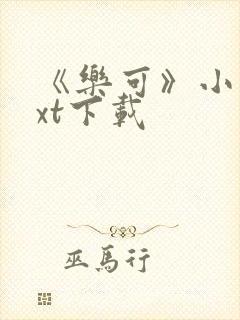 《樂可》小
xt下載
巫馬行